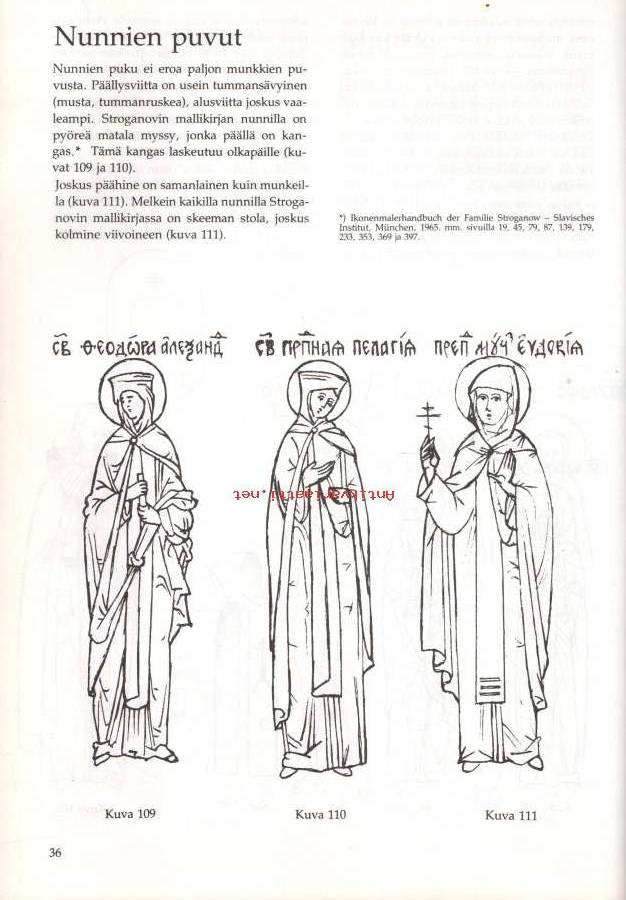 Nunnien puvut
Nunnien puku ei eroa paljon munkkien pu-
vusta. Päällysviitta on usein tummansävyinen
(musta, tummanruskea), alusviitta joskus vaa-
leampi. Stroganovin mallikirjan nunnilla on
pyöreä matala myssy, jonka päällä on kan-
gas.* Tämä kangas laskeutuu olkapäille (ku-
vat 109 ja 110).
Joskus päähine on samanlainen kuin munkeil-
la (kuva 111). Melkein kaikilla nunnilla Stroga-
novin mallikirjassa on skeeman stola, joskus
kolmine viivoineen (kuva 111).
*) Ikonenmalerhandbuch der Familie Stroganow – Slavisches
Institut, München, 1965. mm. sivuilla 19, 45, 79, 87, 139, 179,
233, 353, 369 ja 397.
св ѳеодѡра алеѯанд
св прпнаѧ пелагіѧ
преп муч еудокіѧ
Antikvariaatti.net
Kuva 109
Kuva 110
Kuva 111
36